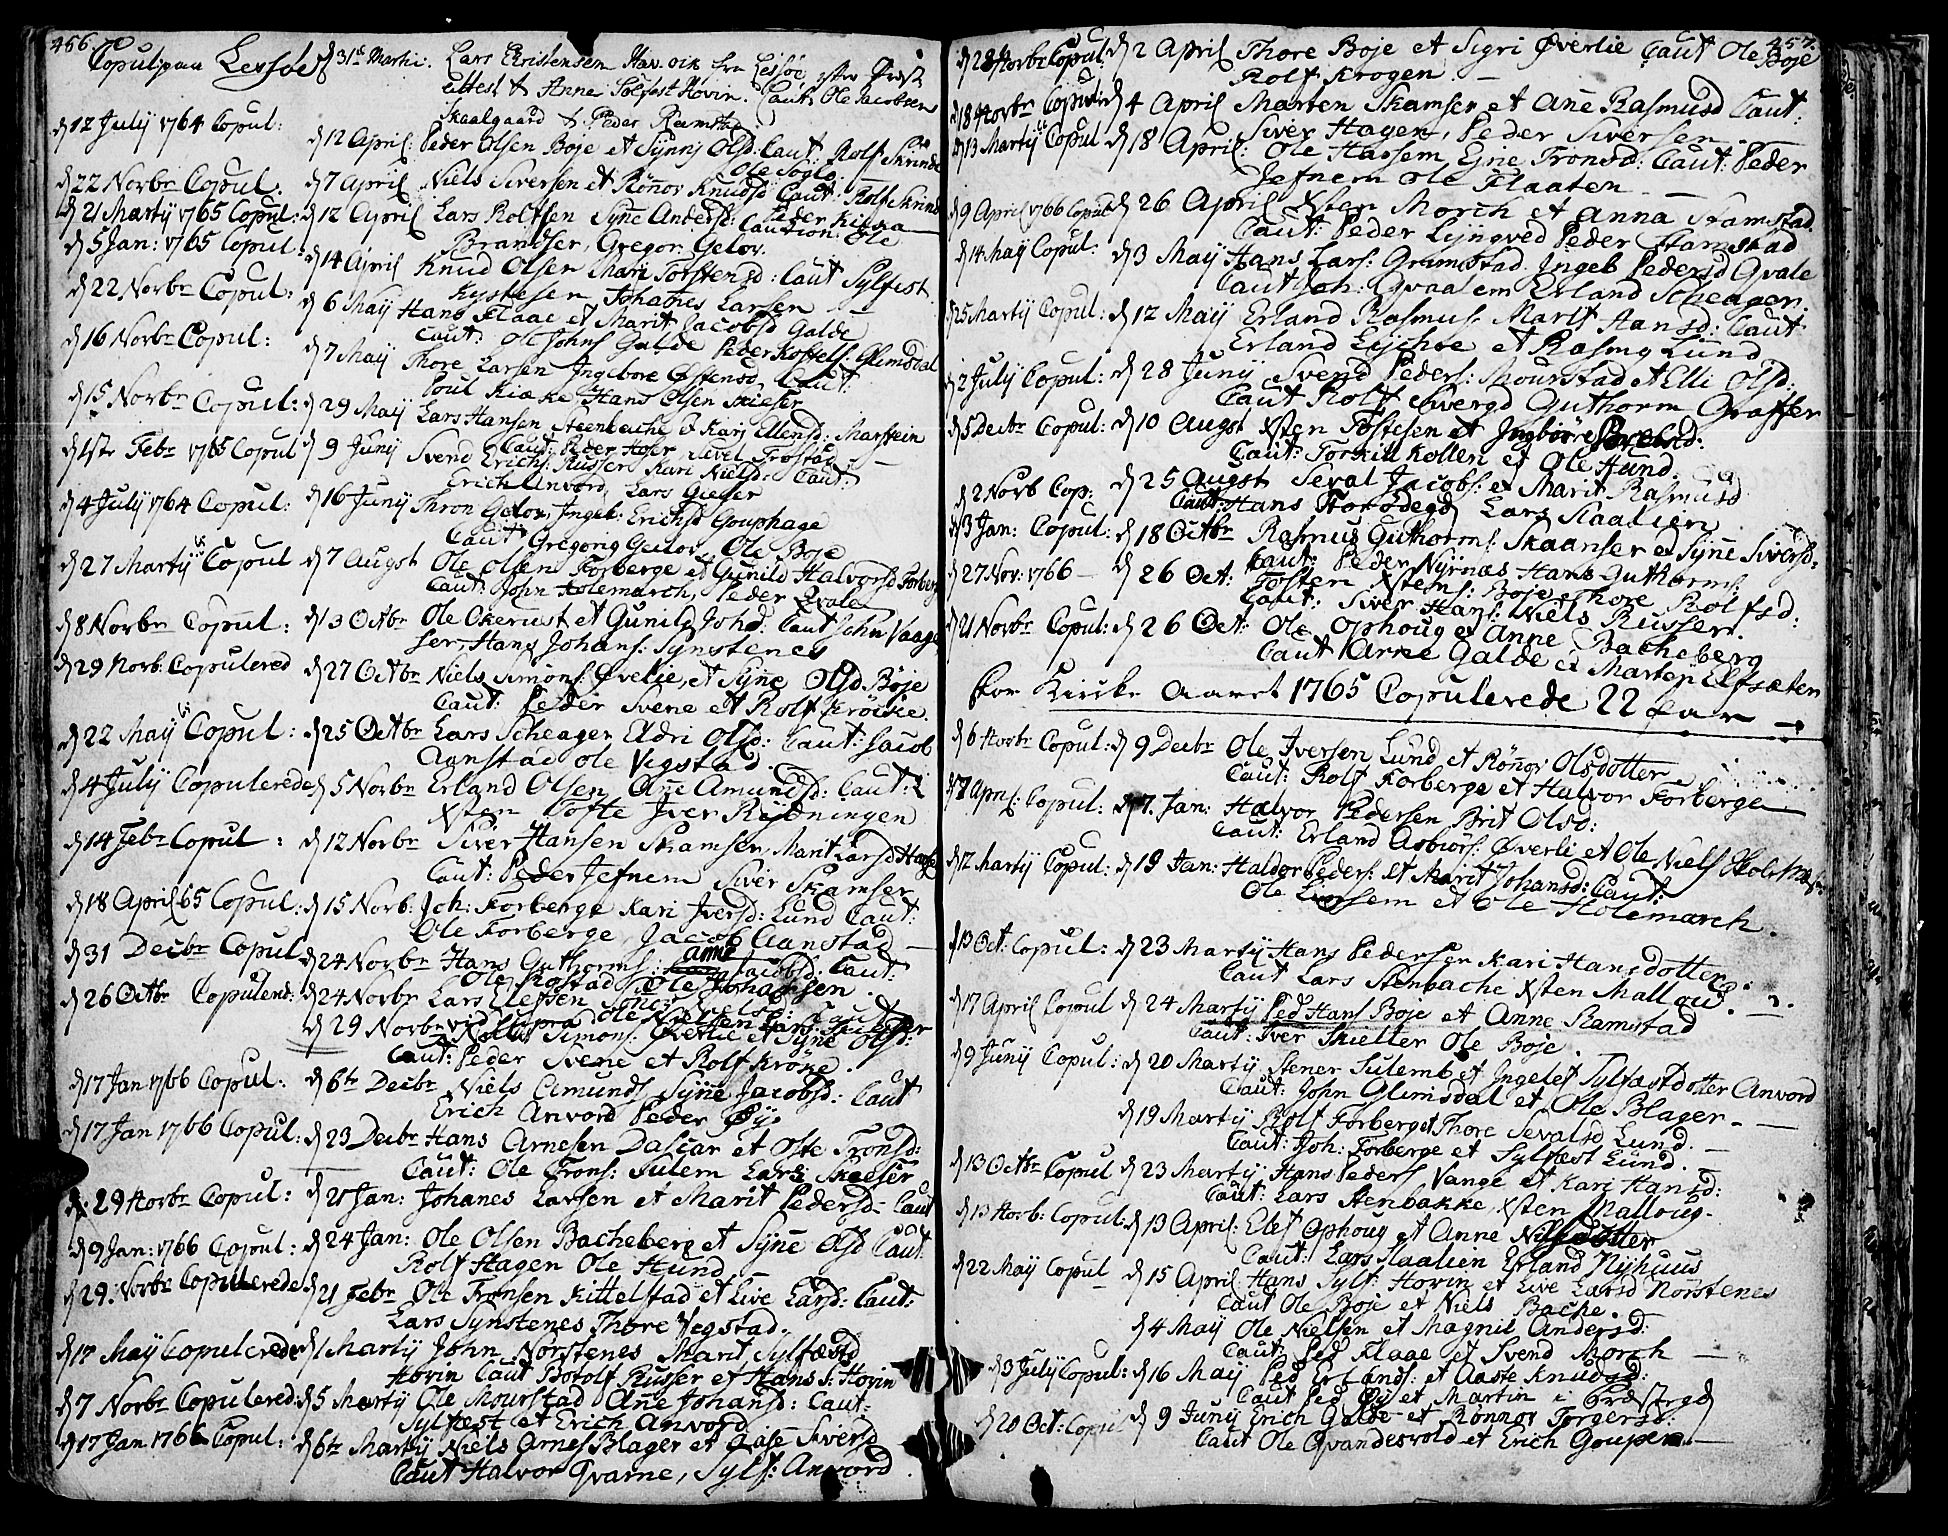 456.
Copul: paa Lessøe d 31te Martii. Lars Christensen fra Lessøe
attest & Anne Solfest Hovin. Caut: Ole Jacobsen
Skaalgaard & Peder Ramstad
d 12 July 1764 Copul: d 12 April: Peder Olsen Boje et Synny Olsd: Caut: Rolf Skrinde
Ole Soglo
d 22 Norbr Copul. d 7 April Niels Siversen et Rönnov Knudsd Caut: Rolf Skrinde
d 21 Martij 1765 Copul: d 12 April Lars Rolfsen Syne Andersd: Caution: Ole
d 5 Jan: 1765 Copul: Brandser, Gregor Gelov.
d 14 April Knud Olsen Mari Torstensd: Caut Sylfest
d 22 Norbr Copul: Johanes Larsen
d 6 Maij Hans Flaae et Marit Jacobsd Galde
d 16 Norbr Copul: Caut: Ole Johns Galde Peder Glimsdal
d 7 Maij Thore Larsen Ingebore Caut:
Poul Kiæke Hans Olsen Skieser
d 15 Norbr Copul: d 29 Maij Lars Hansen Stenbache & Kari Ellensd: Marstein
Caut: Peder Sivel Frostad
d 1ste Febr 1765 Copul d 9 Junij Svend Erichs: Russer Kari Nielsd: Caut:
Erich Anvord, Lars Gieser
d 4 July 1764 Copul: d 16 Junij Thron Gelov, Ingeb: Erichsd Gouphage
Caut Gregorig Gelov, Ole Boje
d 27 Martij Copul d 7 Augst Ole Olsen Forberge et Gunild Halvorsd Forberg
Caut: John Holemarch, Peder Qvale
d 8 Norbr Copul: d 13 Octbr Ole Okerust et Gunild Johd: Caut John Vaage
ser, Hans Johans: Synstenes
d 29 Norb: Copulered d 27 Octbr Niels Simons: Øvelie, et Syne Olsd. Böje
Caut: Peder Svene et Rolf Kröike.
d 22 Maij Copul: d 25 Octbr Lars Scheager Eldri Olsd: Caut: Jacob
Aanstad Ole Vegstad.
d 4 July Copulerede d 5 Norbr Erland Olsen Ane Amundsd: Caut:
Xsten Tofte Iver Rÿdningen
d 14 Febr Copul: d 12 Norbr Siver Hansen Skamser, Marit Larsd
Caut: Peder Jefnem Siver Skamser
d 18 April 65 Copul: d 15 Norb: Joh: Forberge Kari Iversd: Lund Caut:
Ole Forberge, Jacob Aanstad
d 31 Decbr Copul d 24 Norbr Hans Guthorms: anne Jacobsd: Caut:
Ole Rostad Ole Johansen
d 26 Octbr Copulend: d 24 Norbr Lars Elefsen
d 29 Norbr Niels Simons: Øverlie et Syne Olsd:
Caut: Peder Svene et Rolf Kröke.
d 17 Jan 1766 Copul: d 6te Decbr Niels Amunds Syne Jacobsd: Caut
Erich Anvord Peder Øÿ.
d 17 Jan 1766 Copul: d 23 Decbr Hans Arnesen Dalscar et Oste Tronsd:
Caut: Ole Trons: Sulem Lars Skieser
d: 29 Norbr Copul: d 21 Jan: Johanes Larsen et Marit Pedersd. Caut
d 9 Jan: 1766 Copul: d 24 Jan: Ole Olsen Bacheberg et Syne Olsd Caut:
Rolf Hagen Ole Hund
d 29. Norbr Copulerede d 21 Febr Ole Tronsen Kittelstad et Live Larsd: Caut:
Lars Synstenes Thore Vegstad.
d 17 Maij Copulerede d 1 Martij John Norstenes Marit Sylfæstd
Hovin Caut Botolf Russer et Hans S: Hovin
d 7 Norbr Copulered: d 5 Martij Ole Mourstad Ane Johansd: Caut:
Sylfæst et Erich Anvord
d 17 Jan 1766 Copul: d 6te Martij Niels Arnes Blager et Aase Siversd
Caut Halvor Qvarne, Sylf: Anvord
457.
d 28 Norbr Copul d 2 April Thore Boje et Sigri Øverlie Caut Ole Boje
Rolf Krogen.
d 18 Norbr Copul d 4 April Marten Skamser et Ane Rasmusd Caut:
Siver Hagen, Peder Siversen
d 13 Martij Copul d 18 April: Ole Hassem, Ejne Tronsd: Caut: Peder
Jefnem Ole Flaaten
d 9 April 1766 Copul d 26 April Xsten Morch et Anna Ramstad
Caut: Peder Lÿngved Peder Hamstad
d 14 Maij Copul: d 3 Maij Hans Lars: Grumstad. Ingeb Pedersd Qvale
Caut Joh: Qvaalem Erland Scheager.
d 25 Martij Copul: d 12 Maij Erland Rasmus. Marit Hansd: Caut
Erland et Rasmg Lund
d 2 July Copul: d 28 Junij Svend Peders: Mourstad et Elli Olsd:
Caut Rolf Svergd Guthorm Graffer
d 5 Decbr Copul: d 10 Augst Xsten Tostesen et Ingbore
Caut: Torkill Kollen et Ole Hund.
d 2 Norb Cop: d 25 Augst Seval Jacobs: et Marit Rasmusd
Caut: Hans Lars Slaalien
d 3 Jan: Copul: d 18 Octbr Rasmus Guthorms: Skaanser et Syne Siversd:
Caut: Peder Nyrnæs Hans Guthorms:
d 27 Nov: 1766 d 26 Oct: Tosten Xstens: Boje Thore Rolfsd:
Caut: Siver Hans: Niels Russer.
d 21 Norbr Copul: d 26 Oct: Ole Ophoug et Anne Bacheberg
Caut Arne Galde et Marten Elfsæten
for Kircke Aaret 1765 Copulerede 22 par
d 6 Norbr Copul: d 9 Decbr Ole Iversen Lund et Rönnov Olsdotter
Caut: Rolf Forberge et Halvor Forberge
d 8 April: Copul: d 7. Jan: Halvor Pedersen Brit Olsd:
Caut: Erland Asbiörs: Øverli et Ole Niels Skolem:
d 12 Martij Copul: d 19 Jan: Haldor Peders: et Marit Johansd: Caut:
Ole et Ole Holemarch.
d 13 Oct: Copul: d 23 Martij Hans Pedersen Kari Hansdotter.
Caut Lars Stenbache Xsten Malloug.
d 17 April Copul d 24 Martij Ped Hans Boje et Anne Ramstad
Caut: Iver Skielter Ole Boje
d 9 Junij Copul: d 20 Martij Stener Sulemb et Ingelef Sylfastdotter Anvord
Caut: John Glimsdal et Ole Blager.
d 19 Martij Rolf Forberg et Thore Sevalsd Lund.
Caut: Joh: Forberge et Sylfæst Lund.
d 13 Octbr Copul d 23 Martij Hans Peders Vange et Kari Hansd:
Caut: Lars Stenbakke, Xsten Malloug.
d 13 Norb: Copul: d 13 April: Elef Ophoug et Anne Nilsdotter
Caut: Lars Slaalien Erland Nÿhuus
d 22 Maij Copul d 15 April Hans Sylf: Hovin et Live Larsd Norstenes
Caut Ole Boje et Niels Bache.
d 4 Maij Ole Nielsen et Magnil Andersd:
Caut: Ped Flaae et Svend Morch
d 3 July Copul: d 16 Maij Ped Erlands: et Aaste Knudsd:
Caut Ped Øÿ et Martin i Præstegd
d 20 Oct: Copul d 9 Junij Erich Galde et Rönnov Torgersd:
Caut Ole Qvandesvold et Erich Goupen.